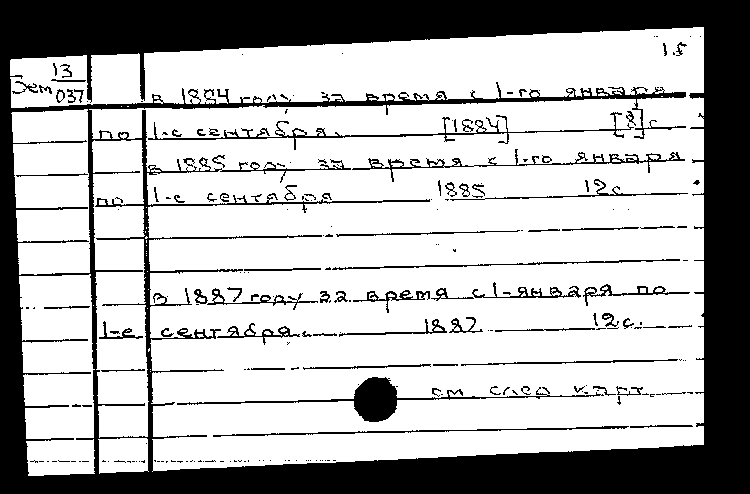 1.5
13
Зем 037
в 1884 году за время с 1-го января
по 1-е сентября. [1884] [8]с.
в 1885 году за время с 1-го января
по 1-е сентября 1885 12с.
в 1887 году за время с 1-января по
1-е сентября. 1887. 12с.
см. след карт.